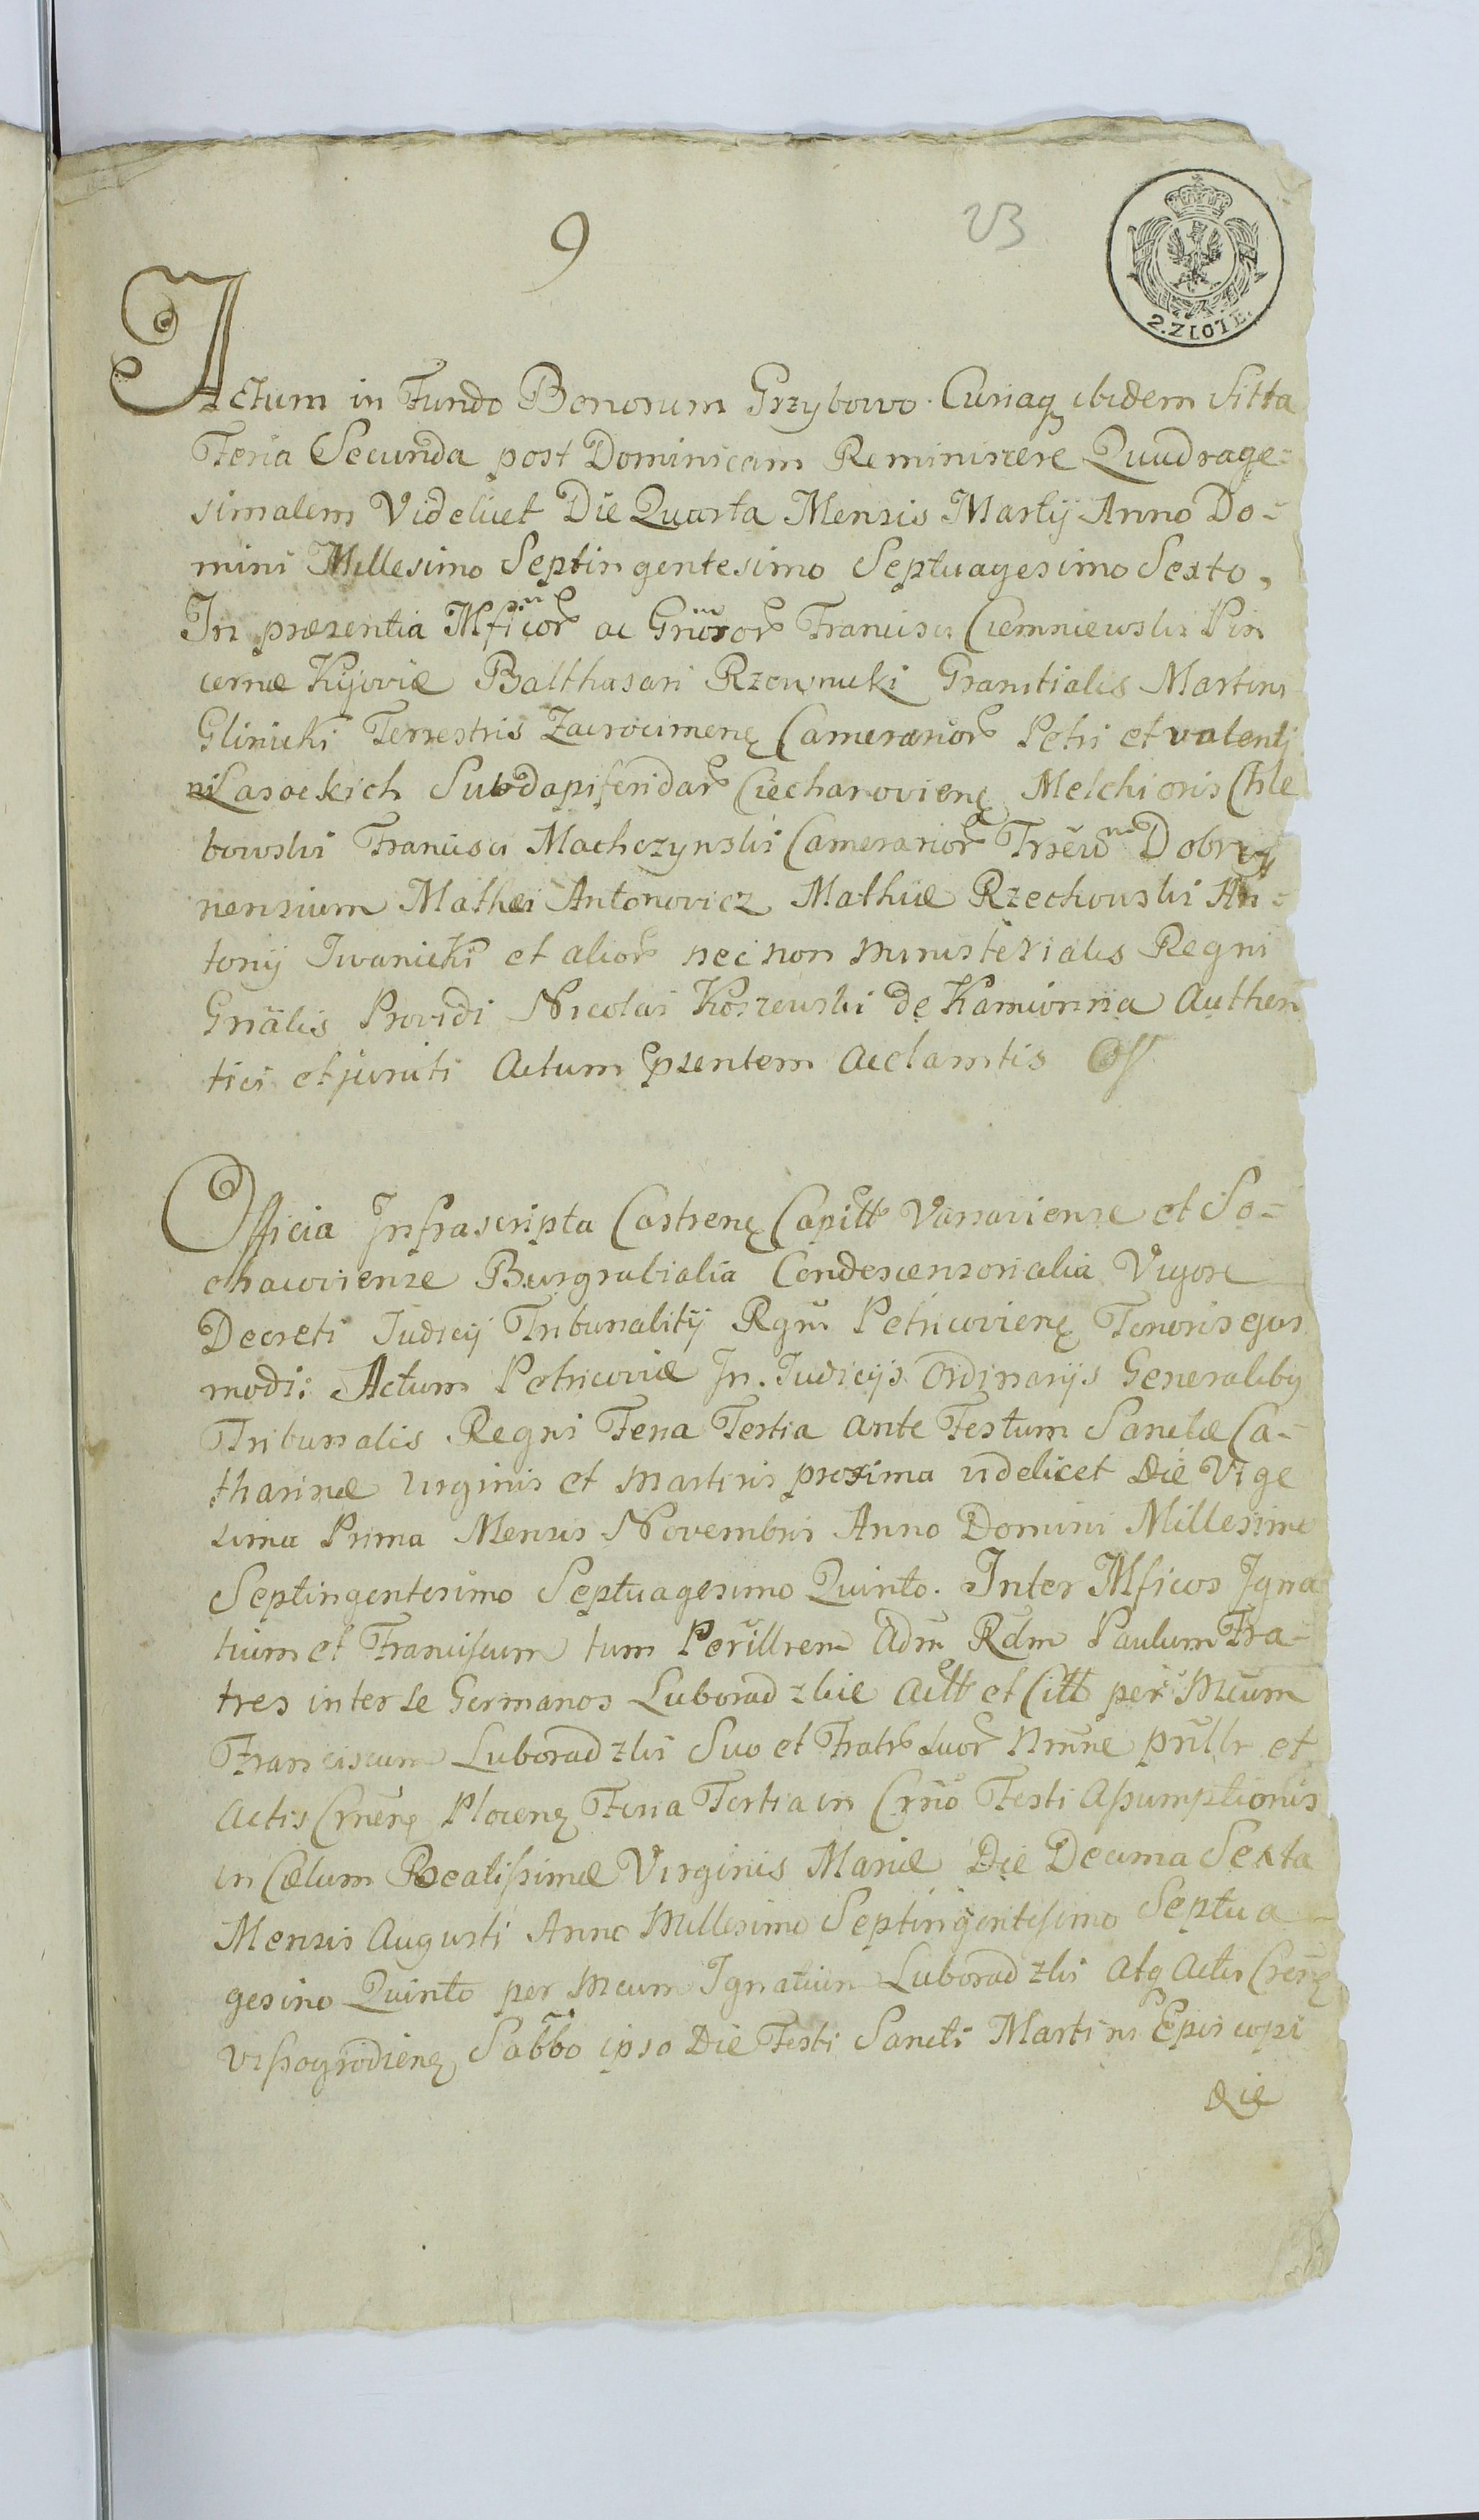 9
23
2. ZLOTE.
Actum in Fundo Bonorum Grzybowo Curiaq ibidem Sitta
Feria Secunda post Dominicam Reminiscere Quadrage=
simalem Videlicet Die Quarta Mensis Martij Anno Do=
mini Millesimo Septingentesimo Septuagesimo Sexto,
In præsentia Mficor ac Gnror Francisci Ciemniewski Pin
cernæ Kijoviæ Balthasari Rzewnicki Granitialis Martini
Glinicki Terrestris Zacrocimenę Camerarior Petri et valenti
ni Lasockich Subdapiferidar Ciechanovienę Melchioris Chle
bowski Francisci Machczynski Camerarior Dobrzy
nensium Mathei Antonovicz Mathiæ Rzechowski An=
tonij Iwanicki et alior nec non ministerialis Regni
Gnälis Providi Nicolai Koszewski de Kamionna Authen
tici et jurati Actum præsentem Acclamtis
Officia Infrascripta Castrenę Capitt Varsaviense et So=
chacoviense Burgrabialia Condescensorialia Vigore
Decreti Iudicij Tribunalitij Regni Petricovienę Tenoris ejus
modi: Actum Petricoviæ In Iudicijs Ordinarijs Generaliby
Tribunalis Regni Feria Tertia ante Festum Sanctæ Ca=
tharinæ Virginis et Martiris proxima videlicet Die Vige
sima Prima Mensis Novembris Anno Domini Millesimo
Septingentesimo Septuagesimo Quinto. Inter Mficos Igna
tium et Franciscum tum Perillrem Adm Rdm Paulum Fra=
tres inter se Germanos Luboradzkie Actt et Citt per Mcum
Franciscum Luboradzki Suo et Fratr suor Nmne pnllr et
Actis Crnenę Plocenę Feria Tertia in Crno Festi Assumptionis
in Cælum Beatissimæ Virginis Mariæ Die Decima Sexta
Mensis Augusti Anno Millesimo Septingentesimo Septua=
gesimo Quinto per Mcum Ignatium Luboradzki Atq Actis Crenę
Vissogrodienę Sabbo ipso Die Festi Sancti Martini Episcopi
Die